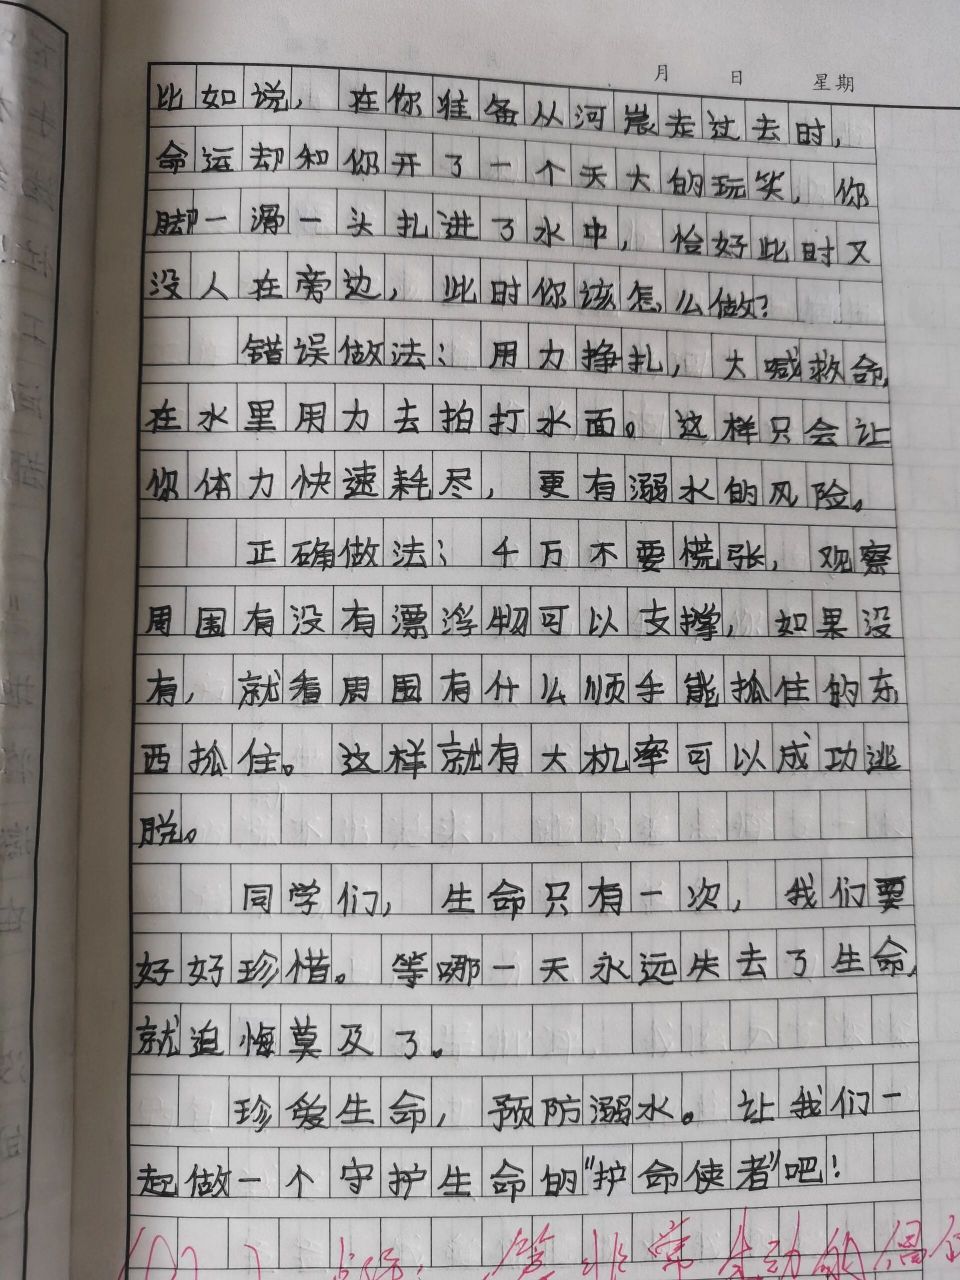 月 日 星期
比如说，在你准备从河岸走过去时，
命运却和你开了一个天大的玩笑，你
脚一滑一头扎进了水中，恰好此时又
没人在旁边，此时你该怎么做？
错误做法：用力挣扎，大喊救命，
在水里用力去拍打水面。这样只会让
你体力快速耗尽，更有溺水的风险。
正确做法：千万不要慌张，观察
周围有没有漂浮物可以支撑，如果没
有，就看周围有什么顺手能抓住的东
西抓住。这样就有大机率可以成功逃
脱。
同学们，生命只有一次，我们要
好好珍惜。等哪一天永远失去了生命，
就追悔莫及了。
珍爱生命，预防溺水。让我们一
起做一个守护生命的"护命使者"吧！
非常生动的